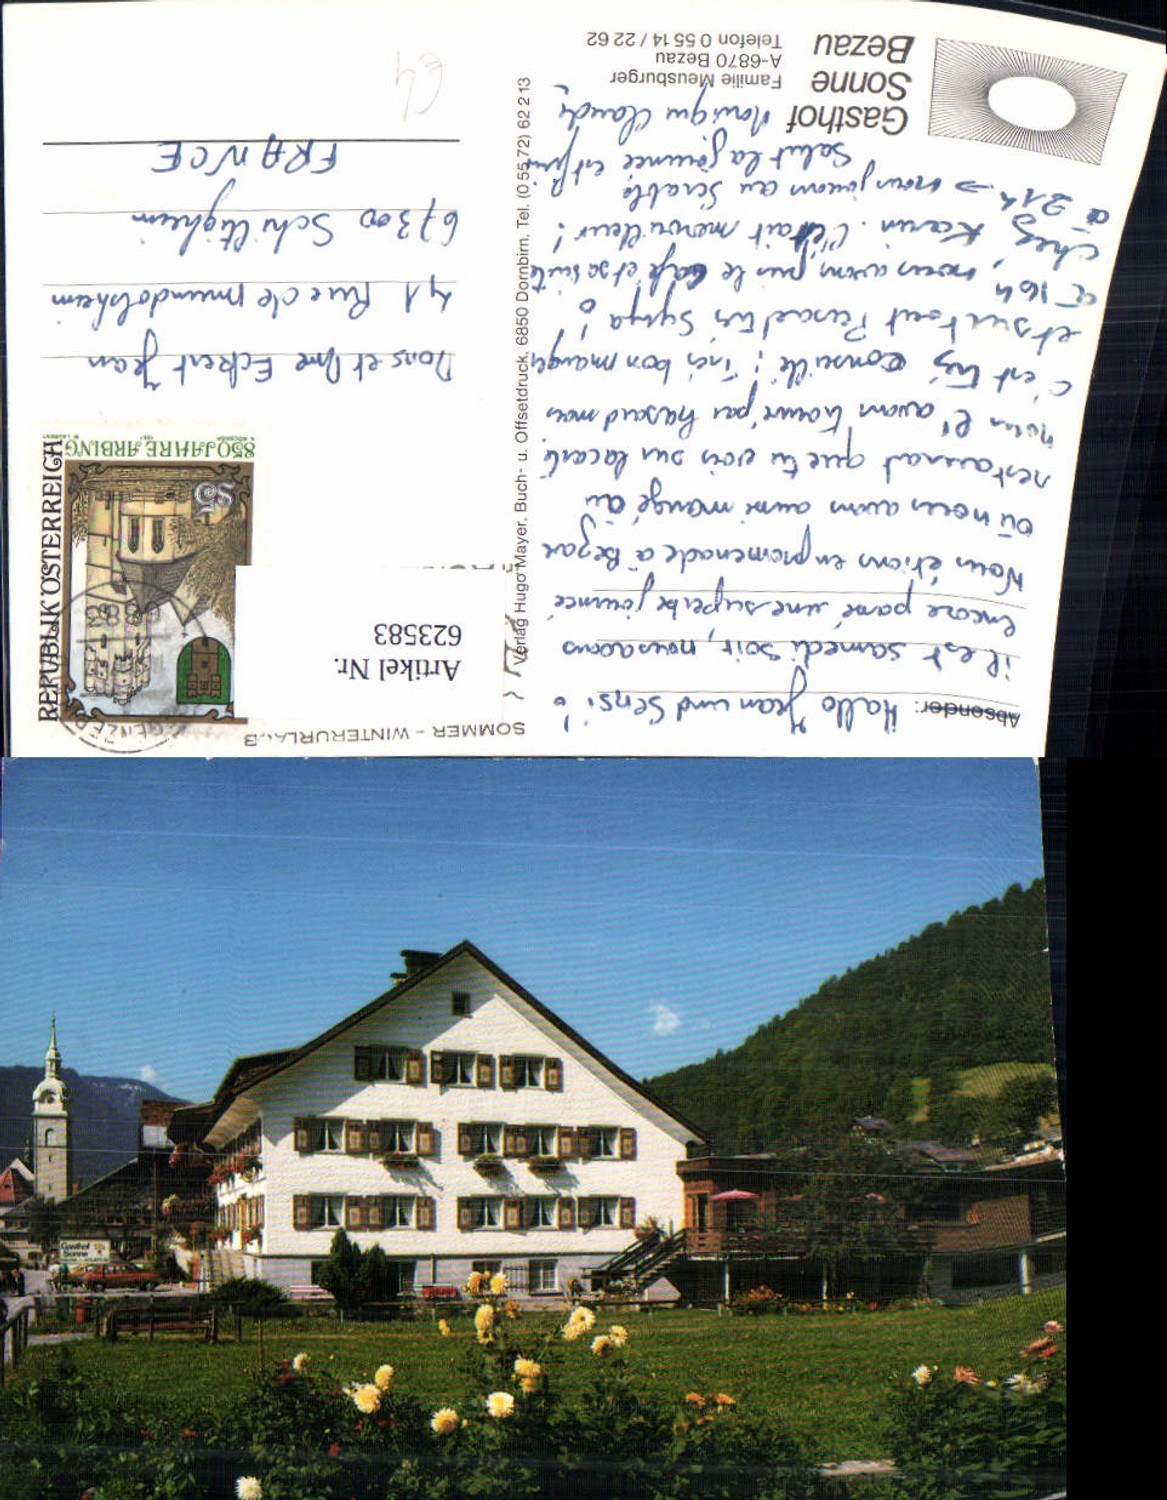 Gasthof
Sonne
Bezau
Familie Meusburger
A-6870 Bezau
Telefon 0 55 14 / 22 62
Absender:
Hallo Jean und Sensi!
il est samedi soir, nous avons
encore passé une superbe journée
Nous étions en promenade à Bezau
où nous avons aussi mangé au
restaurant que tu vois sur la carte
nous l'avons trouvé par hasard mais
c'est très conseillé! Très bon manger
et surtout
à 16 h, nous avons pris le café et sa suite
chez Karin. C'était merveilleux!
à 21 h → nous jouons au Scrabble
Salut la journée est finie
Monique Claude
Verlag Hugo Mayer, Buch- u. Offsetdruck, 6850 Dornbirn, Tel. (0 55 72) 62 2 13
SOMMER - WINTERURLAUB
Artikel Nr.
623583
REPUBLIK ÖSTERREICH
S5
850 JAHRE ARBING
Mons et Mme Eckert Jean
41 Rue de Mundolsheim
67300 Schiltigheim
FRANCE
€4
Gasthof
Sonne